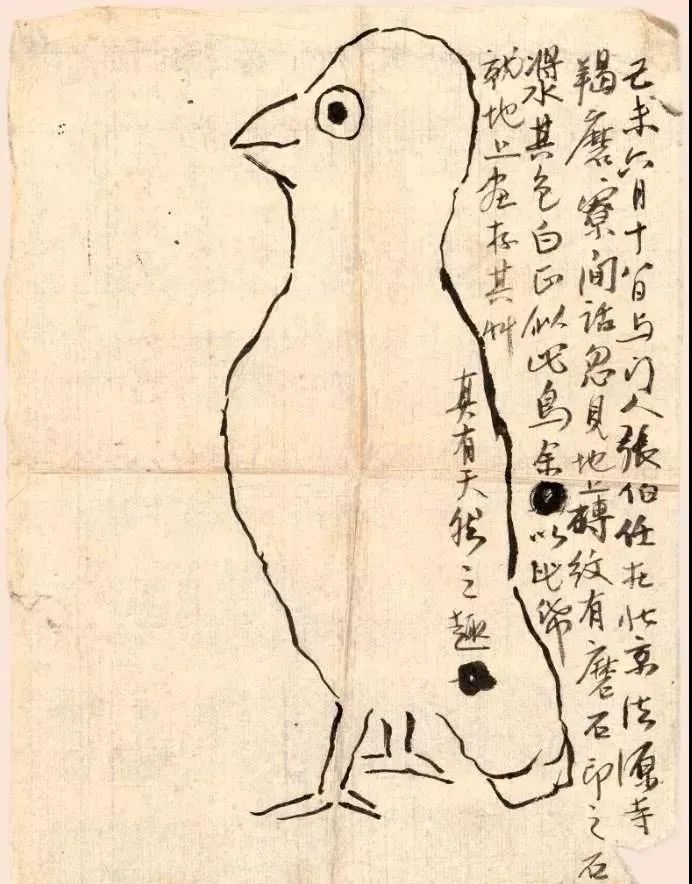 己未六月十八日与門人張伯任在北京法源寺
羯磨寮間話忽見地上磚紋有磨石印之石
漿水其色白正似此鳥余以此帋
就地上畫存其艸
真有天然之趣